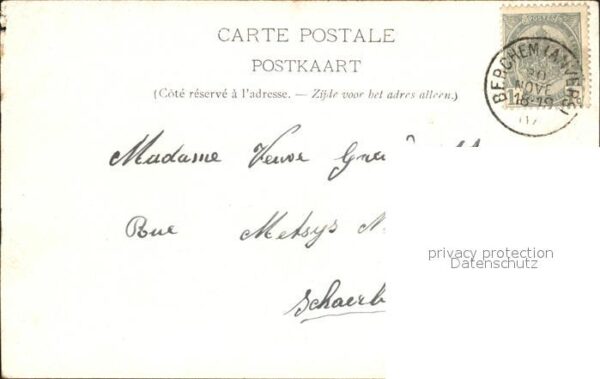 CARTE POSTALE
POSTKAART
(Côté réservé à l'adresse. — Zijde voor het adres alleen.)
BERCHEM (ANVERS)
20
NOVE
18-19
07
Madame Veuve
Rue Metsys N
Schaerb
privacy protection
Datenschutz